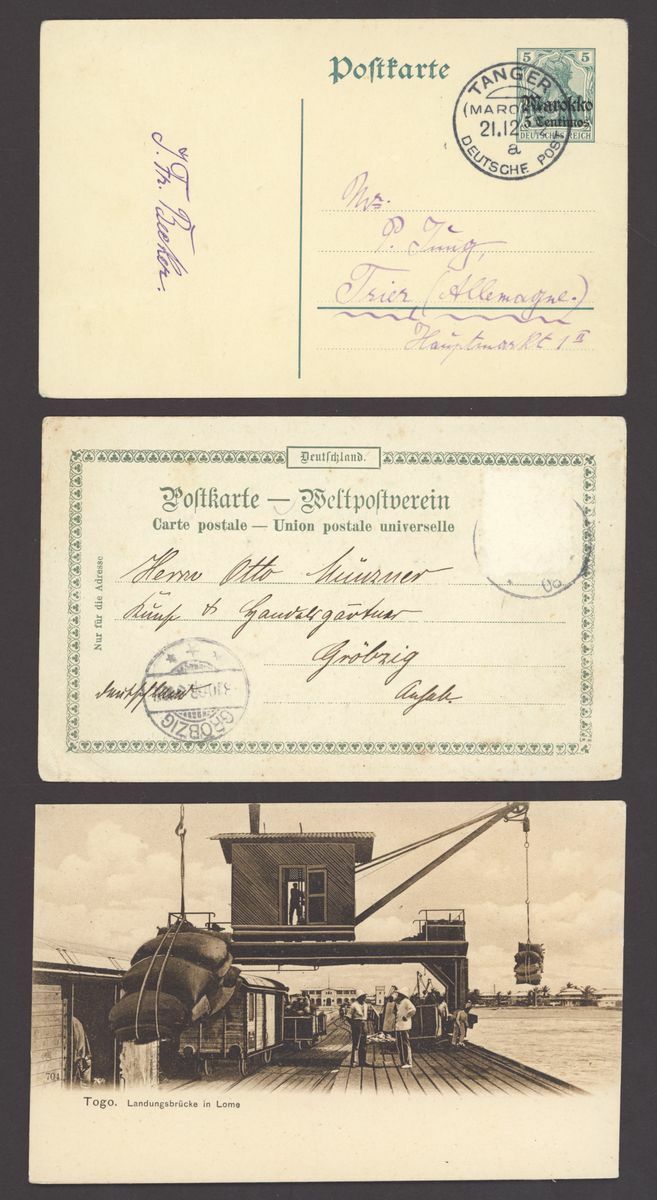 Postkarte
5 5
TANGER
(MAROKKO)
21.12
a
DEUTSCHE POST
Marokko
5 Centimos
DEUTSCHES REICH
J. Fr. Becker.
Mr.
P. Jüng,
Trier, (Allemagne.)
Hauptmarkt 1 II
Deutschland.
Postkarte — Weltpostverein
Carte postale — Union postale universelle
Nur für die Adresse
Herrn Otto Münzner
Kunst & Handelsgärtner
Gröbzig
Anhalt.
Deutschland
GRÖBZIG
08
704
Togo. Landungsbrücke in Lome